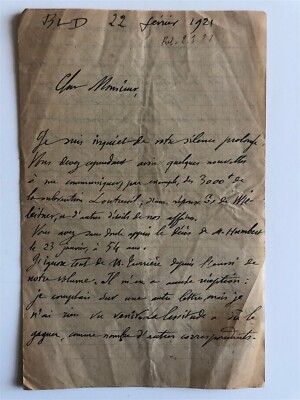 BLD 22 février 1921
Cher Monsieur,
Je suis inquiet de votre silence prolongé.
Vous devez cependant avoir quelques nouvelles
à me communiquer, par exemple, des 3000 f de
la subvention, d'une réponse
d'autres détails de nos affaires.
Vous avez sans doute appris le décès de M. Humbert
le 23 janvier, à 54 ans.
J'ignore tout de M. depuis l'envoi de
notre volume. Il m'en a accusé réception :
je comptais sur une autre lettre, mais je
n'ai rien vu venir. La lassitude a dû le
gagner, comme nombre d'autres correspondants.